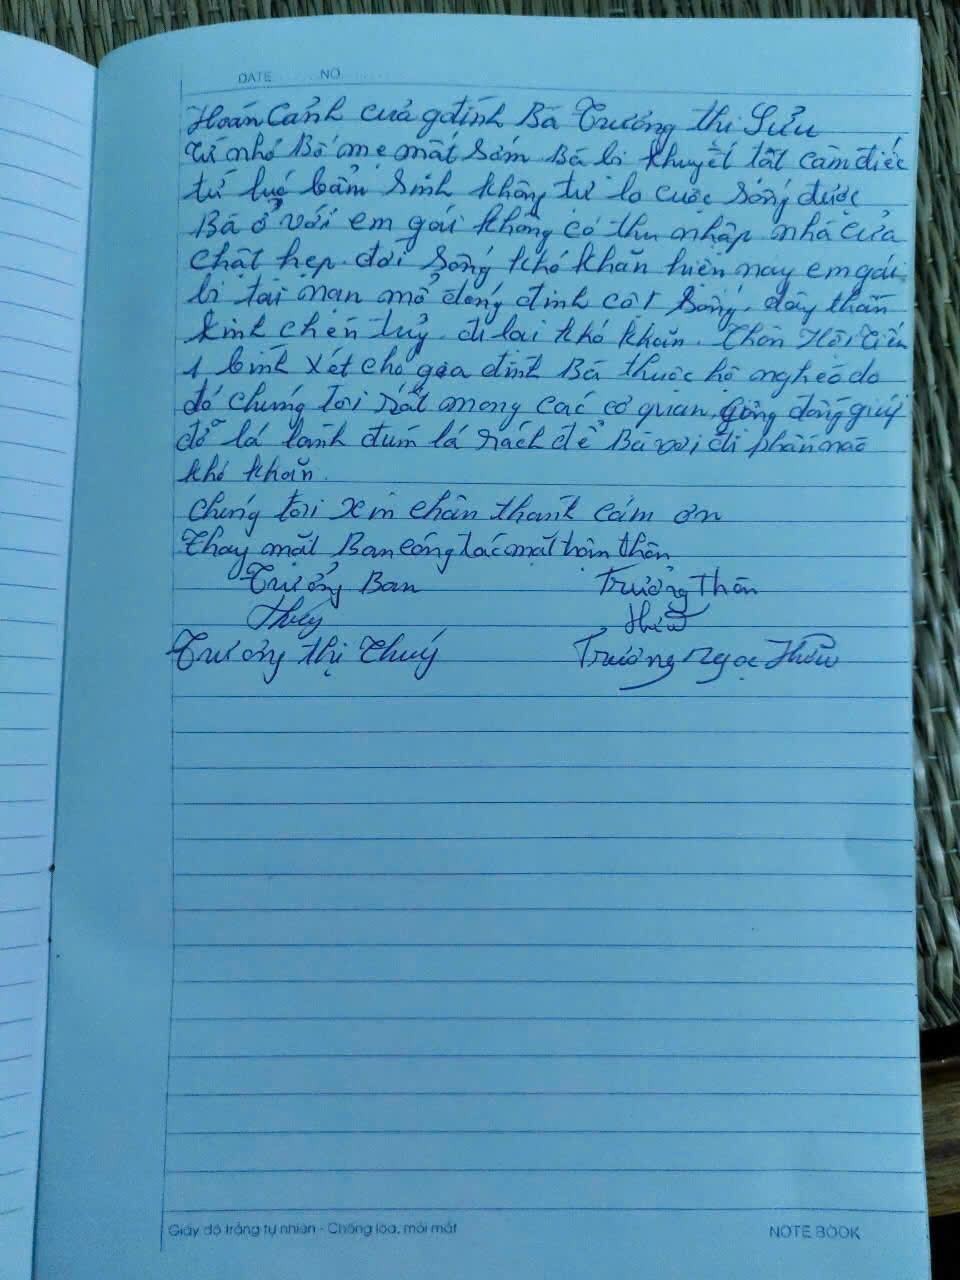 DATE NO
Hoàn Cảnh của gđình Bà Trương thị Sửu
từ nhỏ Bố mẹ mất sớm Bà bị khuyết tật câm điếc
từ lúc bẩm sinh không tự lo cuộc sống được
Bà ở với em gái không có thu nhập nhà cửa
chật hẹp đời sống khó khăn hiện nay em gái
bị tai nạn mổ đóng đinh cột sống, dây thần
kinh chèn tủy đi lại khó khăn. Thôn Hội Tiến
1 bình xét cho gia đình Bà thuộc hộ nghèo do
đó chúng tôi rất mong các cơ quan, cộng đồng giúp
đỡ lá lành đùm lá rách để Bà vơi đi phần nào
khó khăn.
Chúng tôi xin chân thành cám ơn
Thay mặt Ban công tác mặt trận thôn
Trưởng Ban Trưởng Thôn
Thúy Hữu
Trương thị Thúy Trương Ngọc Hữu
Giấy độ trắng tự nhiên - Chống lóa, mỏi mắt
NOTE BOOK